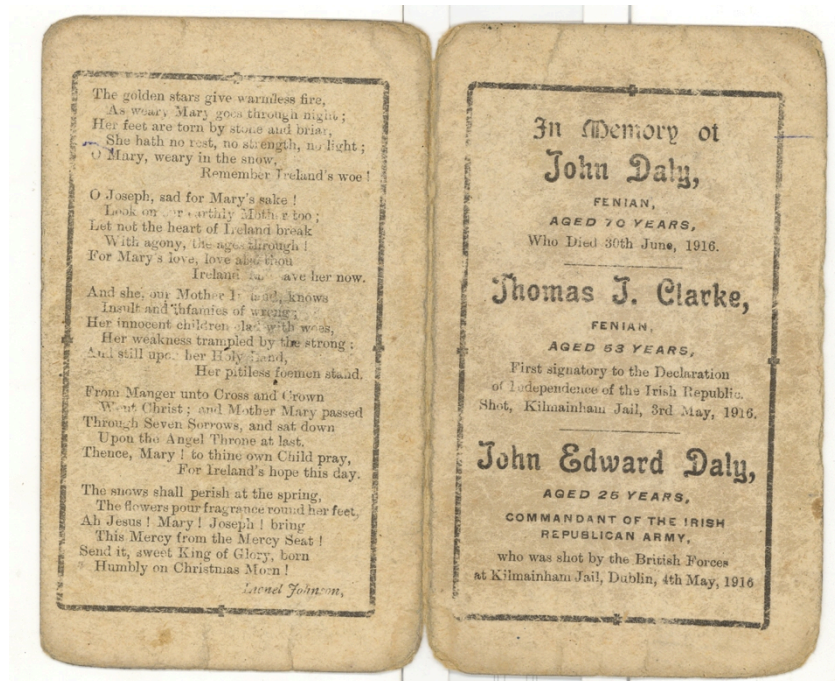 The golden stars give warmless fire,
As weary Mary goes through night ;
Her feet are torn by stone and briar,
She hath no rest, no strength, no light ;
O Mary, weary in the snow,
Remember Ireland's woe !
O Joseph, sad for Mary's sake !
Look on our earthly Mother too ;
Let not the heart of Ireland break
With agony, the ages through !
For Mary's love, love also thou
Ireland save her now.
And she, our Mother Ireland, knows
Insult and infamies of wrong ;
Her innocent children clad with woes,
Her weakness trampled by the strong ;
And still upon her Holy Land,
Her pitiless foemen stand.
From Manger unto Cross and Crown
Went Christ ; and Mother Mary passed
Through Seven Sorrows, and sat down
Upon the Angel Throne at last.
Thence, Mary ! to thine own Child pray,
For Ireland's hope this day.
The snows shall perish at the spring,
The flowers pour fragrance round her feet,
Ah Jesus ! Mary ! Joseph ! bring
This Mercy from the Mercy Seat !
Send it, sweet King of Glory, born
Humbly on Christmas Morn !
Lionel Johnson,
In Memory of
John Daly,
FENIAN,
AGED 70 YEARS,
Who Died 30th June, 1916.
Thomas J. Clarke,
FENIAN,
AGED 53 YEARS,
First signatory to the Declaration
of Independence of the Irish Republic.
Shot, Kilmainham Jail, 3rd May, 1916.
John Edward Daly,
AGED 25 YEARS,
COMMANDANT OF THE IRISH
REPUBLICAN ARMY,
who was shot by the British Forces
at Kilmainham Jail, Dublin, 4th May, 1916